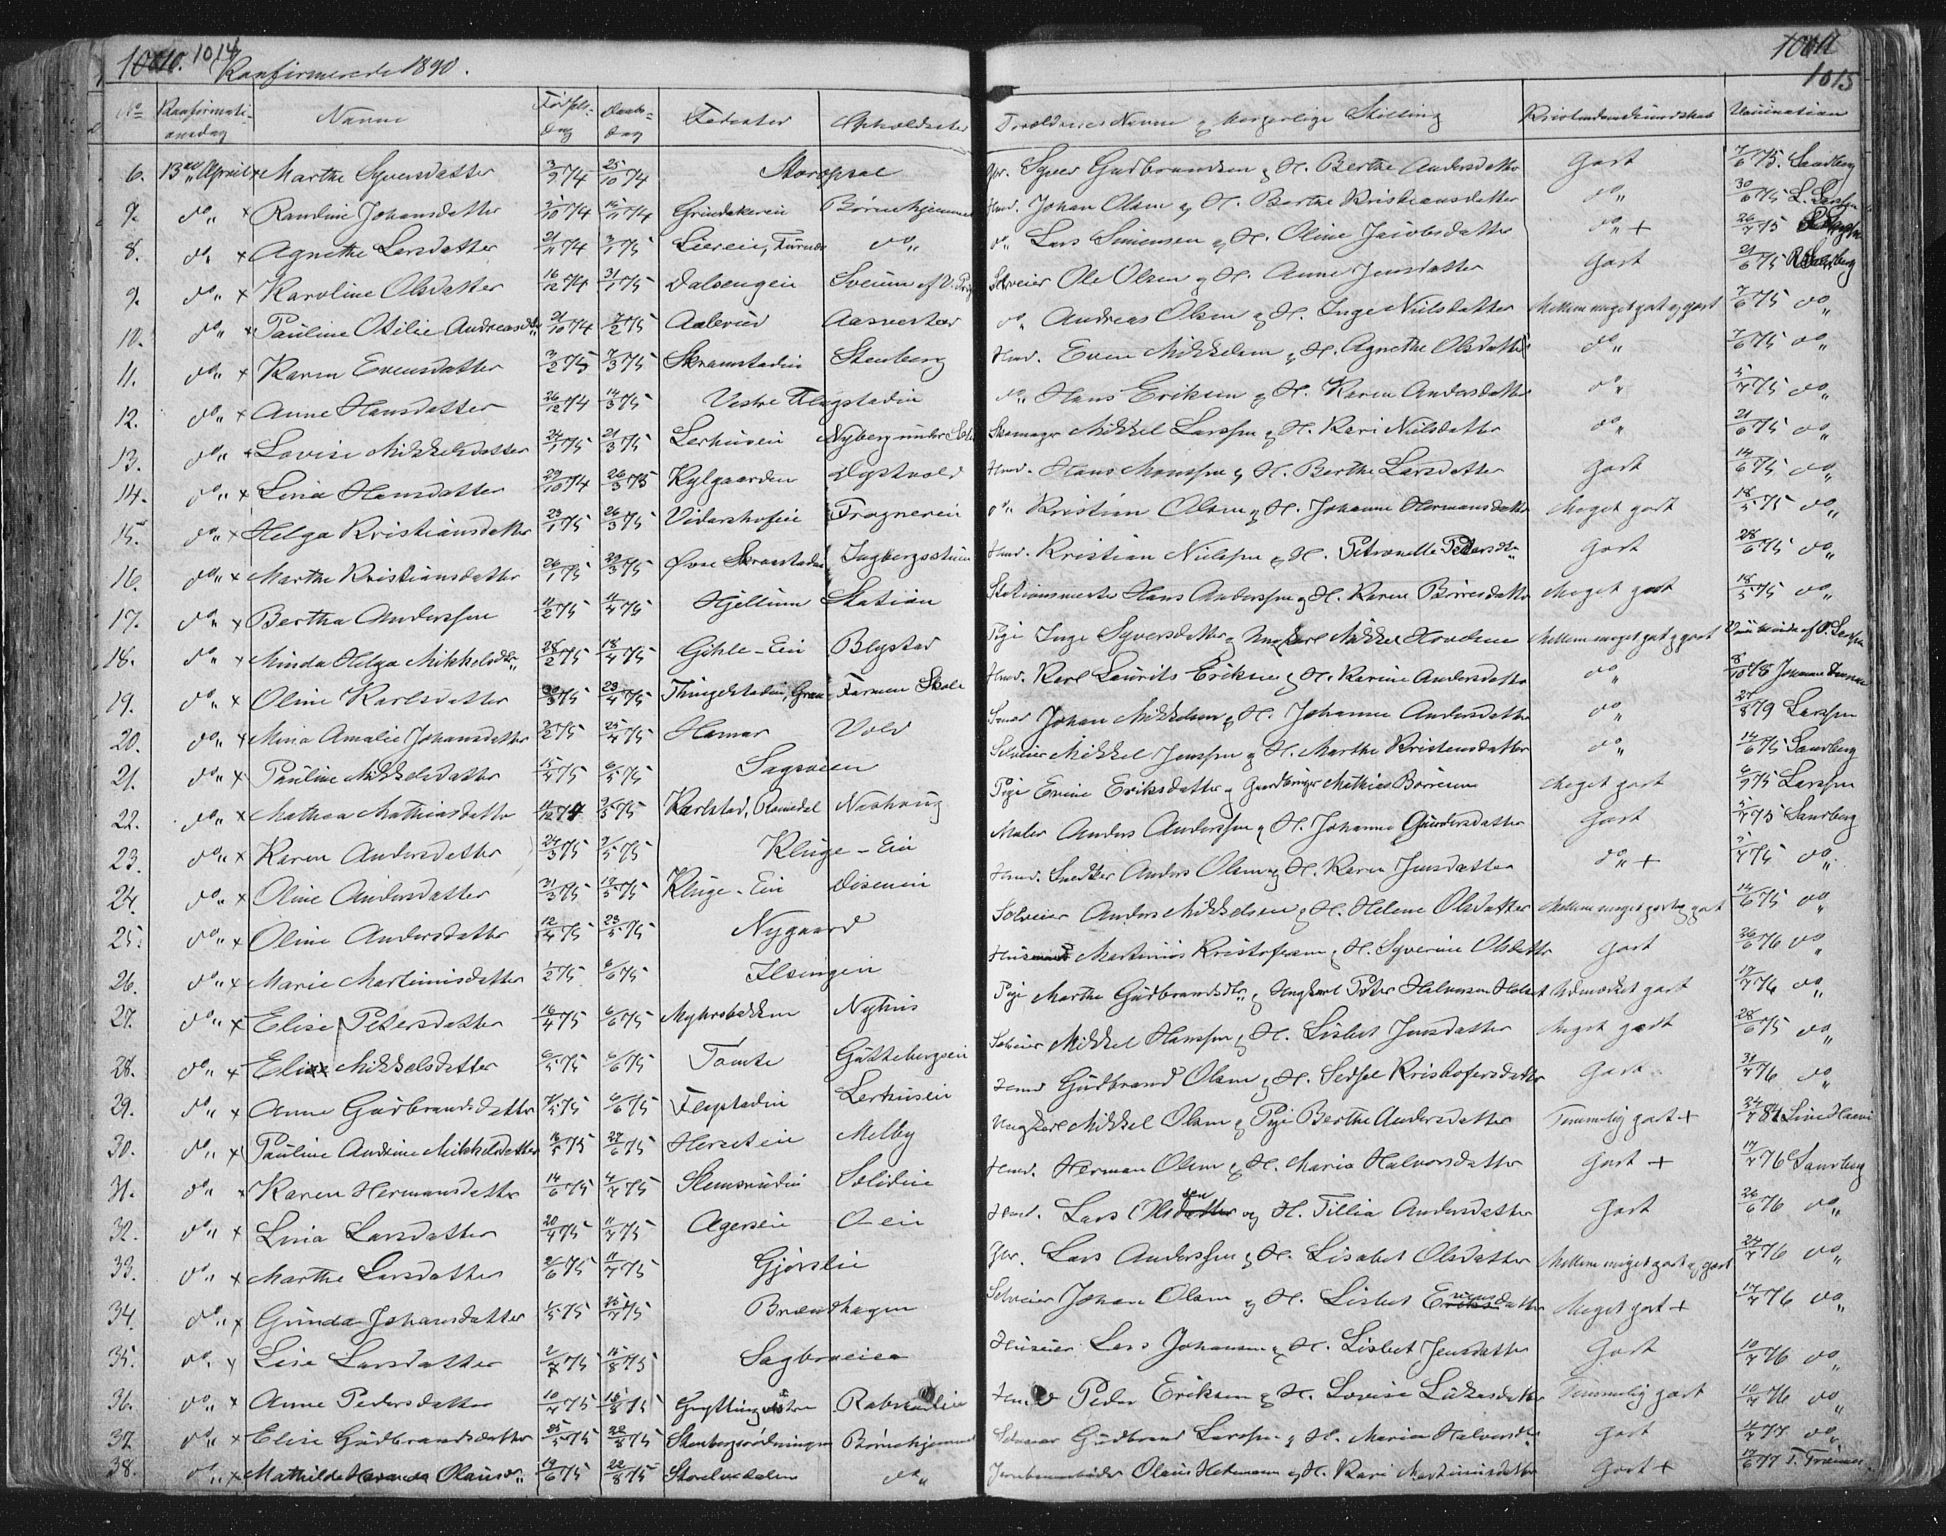 1010. 1014 Konfirmerede 1890. 1011 1015
No Konfirmationsdag Navne Fødselsdag Daabsdag Fødested Opholdssted Forældrenes Navne og borgerlige Stilling Kristendomskundskab Vaccination
6. 13de April x Marthe Syversdatter 3/9 74 25/10 74 Gbr. Syver Gudbrandsen & H. Berthe Andersdatter Godt 7/6 75. Sandberg
7. do " x Randine Johansdatter 74 74 Grindakereie Børnehjemmet Husmd. Johan Olsen og H. Berthe Kristiansdatter do " 30/6 75 L. Larssen
8. do " x Agnethe Larsdatter 74 75 Liereie, Furnæs do " do " Lars Simensen & H. Oline Jacobsdatter do " + 26/7 75
9. do " x Karoline Olsdatter 16/12 74 31/1 75 Dalsengeie Sveum af V. Selveier Ole Olsen & H. Anne Jensdatter Godt 21/6 75
10. do " x Pauline Otilie Andreasdtr 21/10 74 7/2 75 Aalerud do " Andreas Olsen & H. Inge Nielsdatter Mellem meget godt og godt 7/6 75 do "
11. do " x Karen Evensdatter 3/2 75 7/3 75 Skramstadeie Stenberg Husmd. Even Mikkelsen & H. Agnethe Olsdatter do " 7/6 75 do "
12. do " x Anne Hansdatter 26/12 74 14/3 75 Vestre Flagstadeie do " Hans Eriksen & H. Karen Andersdatter do " 5/7 75 do "
13. do " x Lovise Mikkelsdatter 24/1 75 21/3 75 Lerhuseie Nyberg under Skomager Mikkel Larssen & H. Kari Nielsdatter do " 21/6 75 do "
14. do " x Lina Hansdatter 29/10 74 26/3 75 Kylgaarden Dystvold Husmd. Hans Monssen & H. Berthe Larsdatter Godt 14/6 75 do "
15. do " x Helga Kristiansdatter 23/1 75 26/3 75 Vidarshofeie Frognereie do " Kristian Olsen & H. Johanne Hermansdatter Meget godt 18/5 75 do "
16. do " x Marthe Kristiansdatter 26/1 75 29/3 75 Øvre Skramstadeie Ingbergsstuen Husmd. Kristian Nielssen & H. Petronelle Pedersdtr Godt 28/6 75 do "
17. do " x Bertha Anderssen 11/2 75 11/4 75 Hjellum Station Stationsmester Hans Anderssen & H. Karen Børresdatter Meget godt 18/5 75 do "
18. do " x Minda Helga Mikkelsdtr 28/2 75 18/4 75 Gihle-Eie Blystad Pige Inge Syversdatter & Ungkarl Mikkel Hovdene Mellem meget godt og godt af L. Larssen
19. do " x Oline Karlsdatter 75 23/4 75 Thingelstadeie, Gran Farmen Skole Husmd. Karl Laurits Eriksen & H. Karine Andersdatter do " 8/10 78 Johannes
20. do " x Mina Amalie Johansdatter 75 25/4 75 Hamar Vold Smed Johan Mikkelsen & H. Johanne Andersdatter do " 27/8 79 Larssen
21. do " x Pauline Mikkelsdatter 15/4 75 6/5 75 Sagveien Selveier Mikkel Jenssen & H. Marthe Kristensdatter do " 14/6 75 Sandberg
22. do " x Mathea Mathiasdatter 11/12 74 75 Karlstad, Romedal Nashoug Pige Eveine Eriksdatter & Gaardbruger Mathias Børresen Meget godt 6/9 75 Larssen
23. do " x Karen Andersdatter 24/3 75 9/5 75 Kluge-Eie Maler Anders Anderssen & H. Johanne Gundersdatter Godt 5/7 75 Sandberg
24. do " x Oline Andersdatter 31/3 75 17/5 75 Kluge-Eie Diseneie Husmd. Snedker Anders Olsen og H. Karen Jensdatter do " + 5/7 75 do "
25. do " x Oline Andersdatter 12/4 75 23/5 75 Nygaard Selveier Anders Mikkelsen & H. Helene Olsdatter Mellem meget godt og godt 14/6 75 do "
26. do " x Marie Martinusdatter 1/2 75 6/6 75 Ilsengen Husmand Martinus Kristofersen & H. Syverine Olsdatter Godt 26/6 76 do "
27. do " x Elise Petersdatter 16/4 75 6/6 75 Myhrebakken Nyhus Pige Marthe Gudbrandsdtr. & Ungkarl Peter Halvorsen Udmærket godt 17/7 76 do "
28. do " x Elise Mikkelsdatter 6/5 75 6/6 75 Tomte Guttebergseie Selveier Mikkel Hanssen & H. Lisbet Jensdatter Meget godt 28/6 75 do "
29. do " x Anne Gudbrandsdatter 75 6/6 75 Flagstadeie Lerhuseie Husmd Gudbrand Olsen & H. Sidsel Kristofersdatter Godt 31/7 76 do "
30. do " x Pauline Andrine Mikkelsdatter 16/5 75 27/6 75 Herseteie Melby Ungkarl Mikkel Olsen & Pige Berthe Andersdatter Temmelig godt + 84
31. do " x Karen Hermansdatter 14/6 75 4/7 75 Slemsrudeie Solieie Husmd. Herman Olsen & H. Maria Halvorsdatter Godt + 17/7 76 Sandberg
32. do " x Lina Larsdatter 20/4 75 11/7 75 Agerseie O-eie Husmd. Lars Olsdatter sen og H. Tillia Andersdatter Godt 26/6 76 do "
33. do " x Marthe Larsdatter 2/6 75 11/7 75 Gjørslie Gbr. Lars Anderssen & H. Lisabet Olsdatter Mellem meget godt og godt 24/7 76 do "
34. do " x Gunda Johansdatter 1/5 75 25/7 75 Brændhagen Selveier Johan Olsen & H. Lisbet Eriksdatter Meget godt + 17/7 76 do "
35. do " x Lise Larsdatter 2/7 75 15/8 75 Sagbraeien Huseier Lars Johansen & H. Lisbet Jensdatter Godt 10/7 76 do "
36. do " x Anne Pedersdatter 10/7 75 15/8 75 Husmd Peder Eriksen & H. Lovise Lukasdatter Temmelig godt 10/7 76 do "
37. do " x Elise Gudbrandsdatter 25/5 75 22/8 75 Børnehjemmet Selveier Gudbrand Larssen & H. Maria Halvorsdtr Godt 77 do "
38. do " x Mathilde Olausdtr 19/6 75 22/8 75 Skredvedalen do " Jernbanearbeider Olaus Hermansen & H. Kari Martinusdatter Godt + 17/6 77